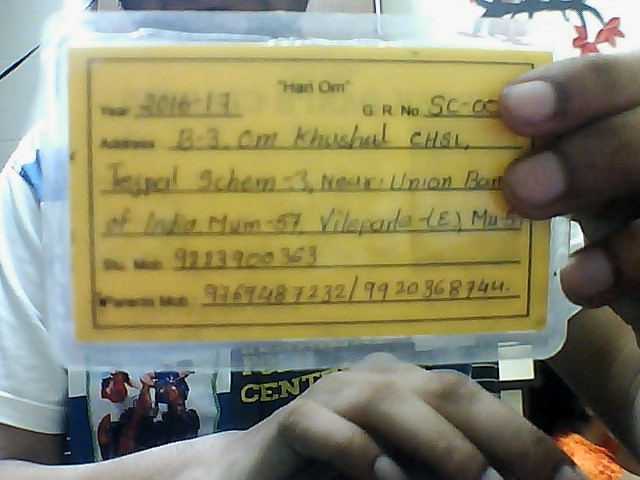 "Hari Om"
Year 2016-17 G. R. No SC-00
Address B-3, Om Khushal CHSL,
Tejpal Schem-3, Near Union Ban
of India Mum-57, Vileparle-(E), Mu-57
Stu. Mob 9223900363
Parents Mob. 9769487232/9920368744.
CENT